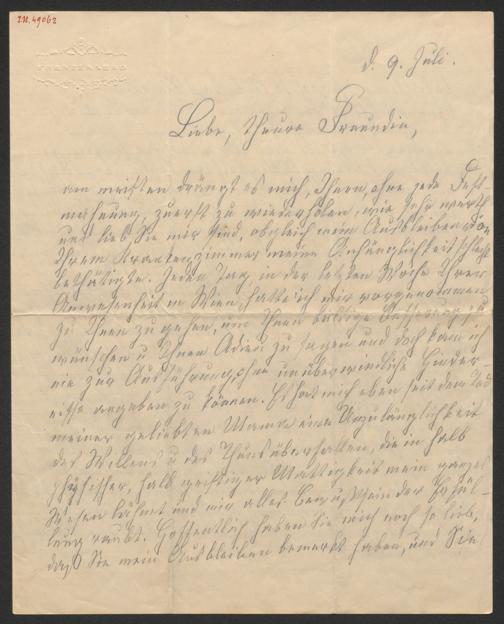 I.N. 49062
d. 9. Juli.
Liebe, theure Freundin,
am meisten drängt es mich, Ihnen, ohne jede
mahnung, zuerst zu wiederholen, wie sehr werth
und lieb Sie mir sind, obgleich mein Ausbleiben von
Ihrem Krankenzimmer meine Anhänglichkeit schlecht
bethätigte. Jeden Tag, in der letzten Woche Ihrer
Anwesenheit in Wien, hatte ich mir vorgenommen
zu Ihnen zu gehen, um Ihnen baldige zu
wünschen u Ihnen Adieu zu sagen und doch kam ich
nie zur Ausführung, ohne unüberwindliche Hinder-
nisse angeben zu können. Es hat mich eben seit dem Tod
meiner geliebten Mama eine Unzulänglichkeit
des Willens u des Thuns überfallen, die in halb
physischer, halb geistiger Mattigkeit mein ganzes
Wesen lähmt und mir alles Bewußtsein der Erfül-
lung raubt. Hoffentlich haben Sie mich noch so lieb,
daß Sie mein Ausbleiben bemerkt haben, und Sie